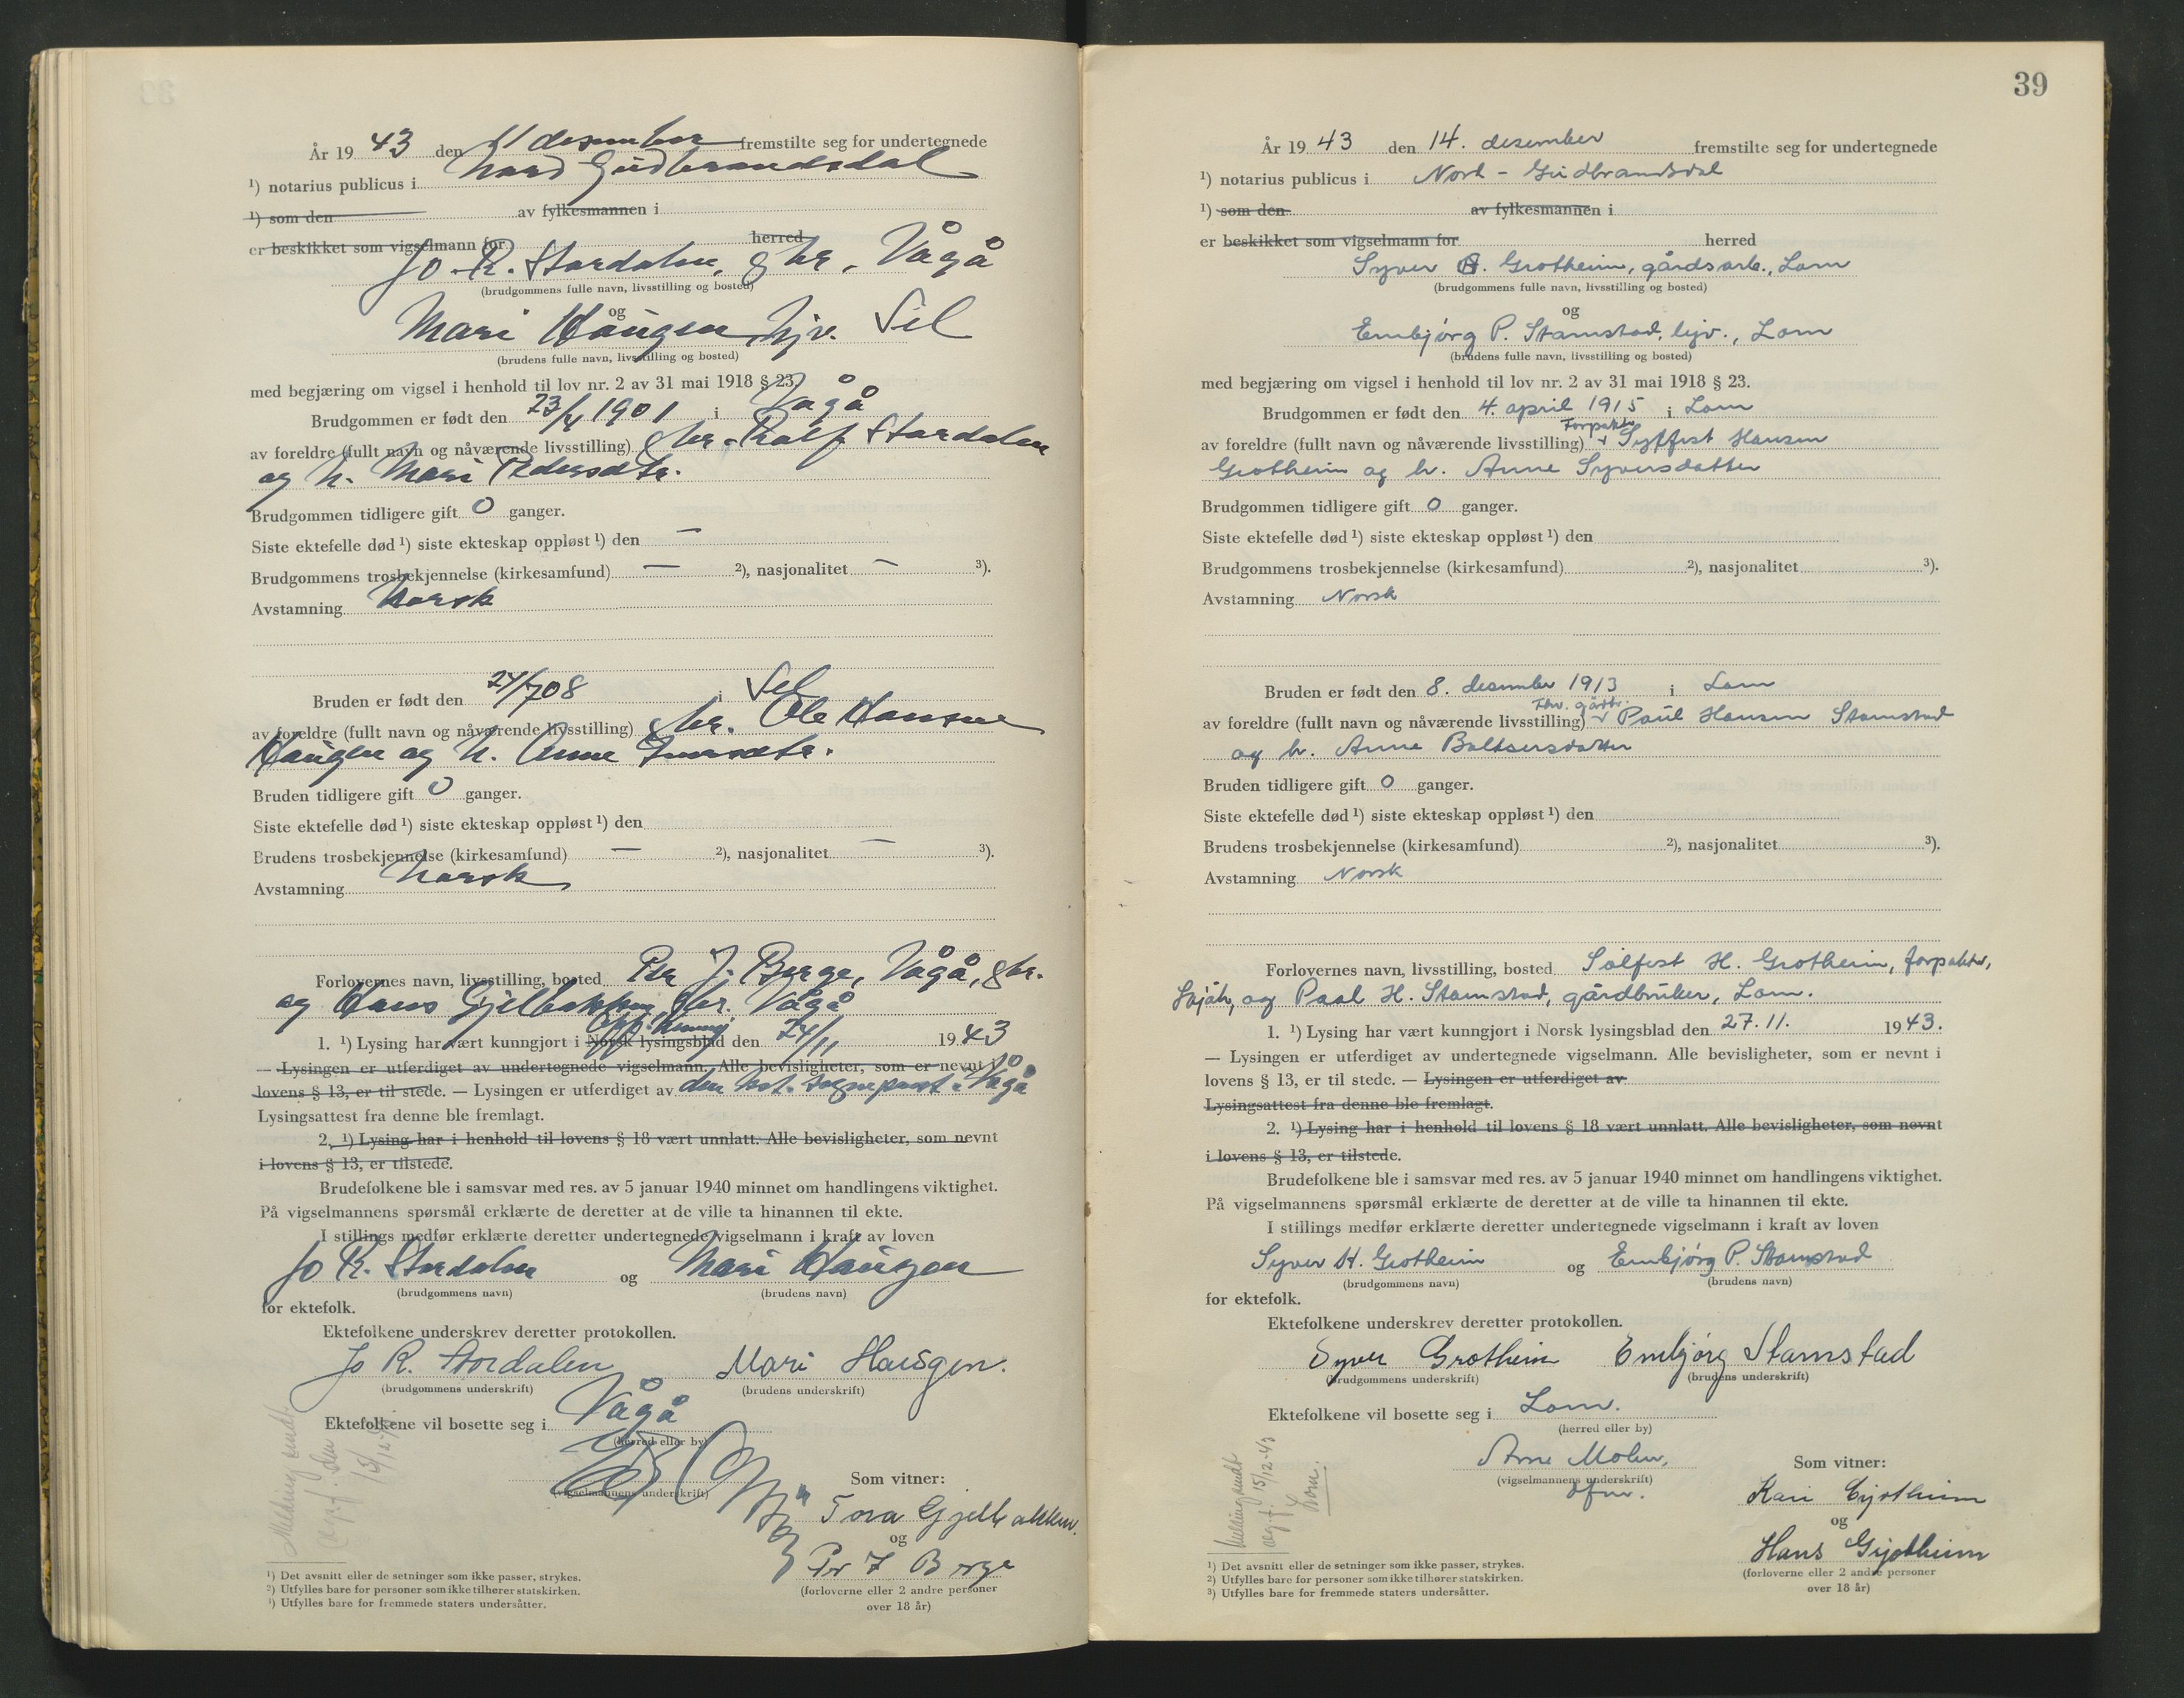 År 19 43 den 11 desember fremstilte seg for undertegnede
¹) notarius publicus i Nord Gudbrandsdal
¹) som den av fylkesmannen i
er beskikket som vigselmann for herred
Jo R. Stordalen, gbr., Vågå
(brudgommens fulle navn, livsstilling og bosted)
og
Mari Haugen hjv. Sel
(brudens fulle navn, livsstilling og bosted)
med begjæring om vigsel i henhold til lov nr. 2 av 31 mai 1918 § 23.
Brudgommen er født den 23/4 1901 i Vågå
av foreldre (fullt navn og nåværende livsstilling) gbr. Rolf Stordalen
og h. Mari Pedersdtr.
Brudgommen tidligere gift 0 ganger.
Siste ektefelle død ¹) siste ekteskap oppløst ¹) den —
Brudgommens trosbekjennelse (kirkesamfund) — ²), nasjonalitet — ³).
Avstamning Norsk
Bruden er født den 24/7 08 i Sel
av foreldre (fullt navn og nåværende livsstilling) gbr. Ole Hansen
Haugen og h. Anne
Bruden tidligere gift 0 ganger.
Siste ektefelle død ¹) siste ekteskap oppløst ¹) den
Brudens trosbekjennelse (kirkesamfund) — ²), nasjonalitet — ³).
Avstamning Norsk
Forlovernes navn, livsstilling, bosted Per J. Berge, Vågå, gbr.
og Hans Gjelbakken, gbr. Vågå
1. ¹) Lysing har vært kunngjort i Norsk lysingsblad den 24/11 19 43
— Lysingen er utferdiget av undertegnede vigselmann. Alle bevisligheter, som er nevnt i
lovens § 13, er til stede. — Lysingen er utferdiget av den kst. sogneprest i Vågå
Lysingsattest fra denne ble fremlagt.
2. ¹) Lysing har i henhold til lovens § 18 vært unnlatt. Alle bevisligheter, som nevnt
i lovens § 13, er tilstede.
Brudefolkene ble i samsvar med res. av 5 januar 1940 minnet om handlingens viktighet.
På vigselmannens spørsmål erklærte de deretter at de ville ta hinannen til ekte.
I stillings medfør erklærte deretter undertegnede vigselmann i kraft av loven
Jo R. Stordalen og Mari Haugen
(brudgommens navn) (brudens navn)
for ektefolk.
Ektefolkene underskrev deretter protokollen.
Jo R. Stordalen Mari Haugen.
(brudgommens underskrift) (brudens underskrift)
Ektefolkene vil bosette seg i Vågå
(herred eller by)
(vigselmannens underskrift)
Som vitner:
Tora Gjelbakken
og
Per J Berge
(forloverne eller 2 andre personer
over 18 år)
Melding sendt
¹) Det avsnitt eller de setninger som ikke passer, strykes.
²) Utfylles bare for personer som ikke tilhører statskirken.
³) Utfylles bare for fremmede staters undersåtter.
39
År 19 43 den 14. desember fremstilte seg for undertegnede
¹) notarius publicus i Nord - Gudbrandsdal
¹) som den av fylkesmannen i
er beskikket som vigselmann for herred
Syver H. Grotheim, gårdsarb., Lom
(brudgommens fulle navn, livsstilling og bosted)
og
Embjørg P. Stamstad, hjv., Lom
(brudens fulle navn, livsstilling og bosted)
med begjæring om vigsel i henhold til lov nr. 2 av 31 mai 1918 § 23.
Brudgommen er født den 4. april 1915 i Lom
Forpakter
av foreldre (fullt navn og nåværende livsstilling) Sylfest Hansen
Grotheim og h. Anne Syversdatter
Brudgommen tidligere gift 0 ganger.
Siste ektefelle død ¹) siste ekteskap oppløst ¹) den
Brudgommens trosbekjennelse (kirkesamfund) ²), nasjonalitet ³).
Avstamning Norsk
Bruden er født den 8. desember 1913 i Lom
fhv. gårdbr.
av foreldre (fullt navn og nåværende livsstilling) Paul Hansen Stamstad
og h. Anne Baltsersdatter
Bruden tidligere gift 0 ganger.
Siste ektefelle død ¹) siste ekteskap oppløst ¹) den
Brudens trosbekjennelse (kirkesamfund) ²), nasjonalitet ³).
Avstamning Norsk
Forlovernes navn, livsstilling, bosted Sølfest H. Grotheim, forpakter,
Skjåk, og Paal H. Stamstad, gårdbruker, Lom.
1. ¹) Lysing har vært kunngjort i Norsk lysingsblad den 27.11. 19 43.
— Lysingen er utferdiget av undertegnede vigselmann. Alle bevisligheter, som er nevnt i
lovens § 13, er til stede. — Lysingen er utferdiget av
Lysingsattest fra denne ble fremlagt.
2. ¹) Lysing har i henhold til lovens § 18 vært unnlatt. Alle bevisligheter, som nevnt
i lovens § 13, er tilstede.
Brudefolkene ble i samsvar med res. av 5 januar 1940 minnet om handlingens viktighet.
På vigselmannens spørsmål erklærte de deretter at de ville ta hinannen til ekte.
I stillings medfør erklærte deretter undertegnede vigselmann i kraft av loven
Syver H. Grotheim og Embjørg P. Stamstad
(brudgommens navn) (brudens navn)
for ektefolk.
Ektefolkene underskrev deretter protokollen.
Syver Grotheim Embjørg Stamstad
(brudgommens underskrift) (brudens underskrift)
Ektefolkene vil bosette seg i Lom.
(herred eller by)
Arne Molen,
(vigselmannens underskrift)
ofm.
Som vitner:
Kari Grjotheim
og
Hans Grjotheim
(forloverne eller 2 andre personer
over 18 år)
Melding sendt
spf. 15/12-43
Lom.
¹) Det avsnitt eller de setninger som ikke passer, strykes.
²) Utfylles bare for personer som ikke tilhører statskirken.
³) Utfylles bare for fremmede staters undersåtter.